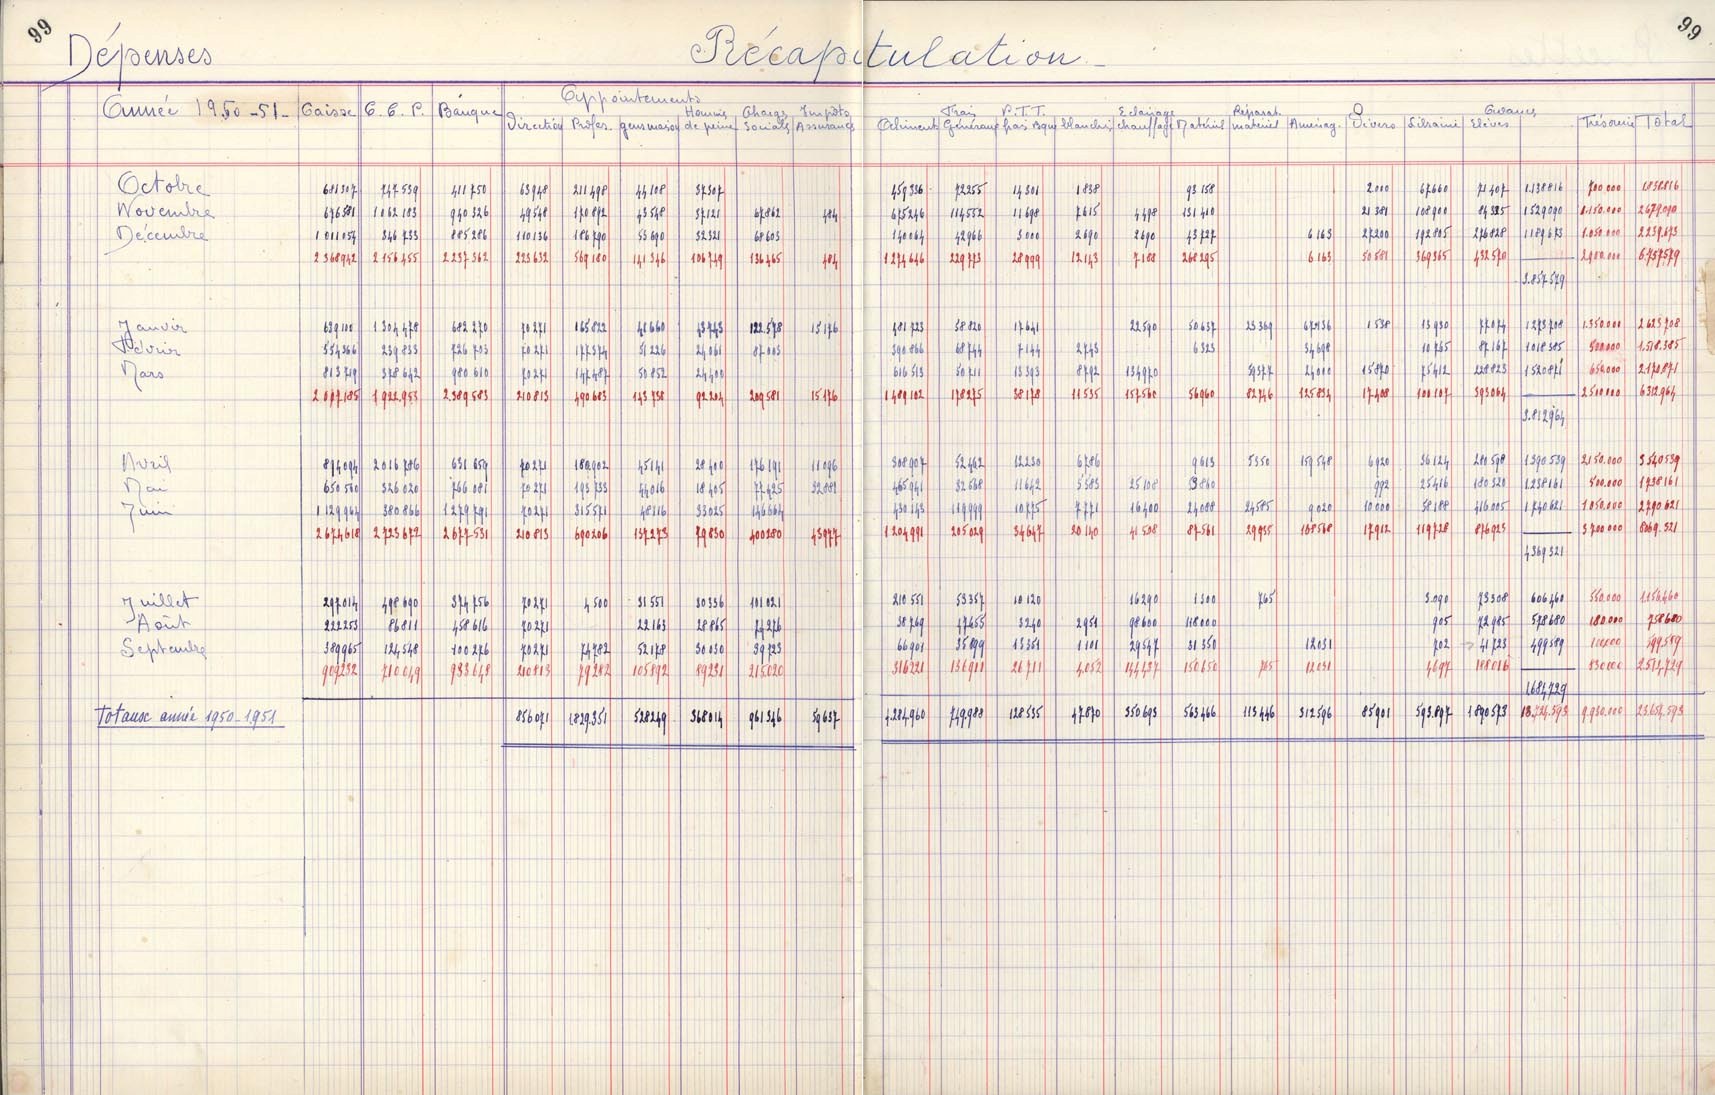 99 99
Dépenses Récapitulation
Année 1950-51 Caisse C.C.P. Banque Appointements Direction Profes. gens maison Hommes de peine Charges Sociales Impôts Assurances Aliment Frais Généraux P.T.T. frais Bque blanchis Eclairage chauffage Matériel Réparat. matériel Aménag. Divers Librairie Avances Elèves Trésorerie Total
Octobre 681307 747539 411750 63948 211498 44108 37307 459336 72255 14301 1838 93158 2000 67660 71407 1.138816 700.000 1838816
Novembre 676581 1062183 940326 49548 170892 43548 37121 67862 484 675246 114552 11698 7615 4498 131410 21381 108900 84335 1529090 1.150.000 2679090
Décembre 1011054 346733 885286 110136 186790 53690 32321 68603 140064 42966 3000 2690 2690 43727 6163 27200 192805 276828 1189673 1.050.000 2239673
2368942 2156455 2237362 223632 569180 141346 106749 136465 484 1274646 229773 28999 12143 7188 268295 6163 50581 369365 432570 2900.000 6.757579
3.857579
Janvier 629100 1304478 682270 70271 165822 41660 43743 122578 15176 481723 58820 17641 22590 50637 23369 67136 1538 13930 77074 1273708 1.350.000 2623708
Février 554366 239833 726703 70271 177374 51226 24061 87003 390866 68744 7144 2743 6323 34698 10765 87167 1018385 500.000 1.518.385
Mars 813719 378642 980610 70271 147487 50852 24400 616513 50711 13393 8792 134970 59377 24000 15870 75412 228823 1520871 650.000 2170871
1922953 2389583 210813 490683 143738 92204 209581 15176 1489102 178275 38178 11535 157560 56960 82746 125834 17408 100107 393064 2500000 6312964
3.812964
Avril 894094 2016786 631659 70271 180902 45141 28400 176191 11096 308907 52462 12230 6786 9613 5350 159548 6920 36124 280598 1390539 2150.000 3540539
Mai 650560 326020 766081 70271 193733 44016 18405 77425 32881 465941 32568 11642 5583 25108 992 25416 180320 1238161 500.000 1738161
Juin 1129964 380866 1279791 70271 315571 48116 33025 146664 430143 119999 10775 7771 16400 24088 24585 9020 10.000 58188 416005 1740621 1050.000 2790621
2674618 2723672 2677531 210813 690206 137273 79830 400280 43977 1204991 205029 34647 20140 41508 87561 29935 168568 17912 119728 876923 3700000 8069.321
4369321
Juillet 297014 498690 374756 70271 4500 31551 30336 101021 210551 53357 10120 16290 1300 765 3.090 73308 606460 550.000 1.156460
Août 222253 86811 458616 70271 22163 28865 74276 38769 47655 3240 2951 98600 118000 905 72985 578680 180.000 758680
Septembre 380965 124548 100276 70271 74782 52178 30030 39723 66901 35899 13351 1101 29547 31350 12031 702 41723 499589 100000 599589
909232 710049 933648 210813 79282 105892 89231 215020 316221 136911 26711 4.052 144437 150650 765 12031 4697 188016 830000 2514729
1.684729
Totaux année 1950-1951 856071 1829351 528249 368014 961346 59637 4.284.960 749.988 128535 47870 350693 563466 113446 312596 85901 593.897 1890573 13.724.593 9.930.000 23.654.593